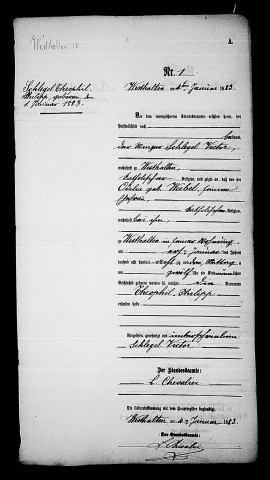 Westhalten 18
A.
Nr. 1
Schlegel Theophil
Philipp, geboren den
1 Januar 1883.
Westhalten am 4ten Januar 1883.
Vor dem unterzeichneten Standesbeamten erschien heute, der
Persönlichkeit nach
kannt,
der Winzer Schlegel Victor,
wohnhaft
Westhalten,
katholischer Religion, und zeigte an, daß von der
geb. Weibel, seiner
Ehefrau,
katholischer Religion,
wohnhaft bei ihm,
zu Westhalten in seiner Wohnung
am Januar des Jahres
tausend acht hundert achtzig und drei
Uhr ein Kind
geboren worden sei, welches Vornamen
Theophil, Philipp
erhalten habe
Vorgelesen, genehmigt und unterschrieben
Schlegel Victor.
Der Standesbeamte.
L. Chevalier.
Die Uebereinstimmung mit dem Hauptregister beglaubigt
Westhalten am 4ten Januar 1883.
Der Standesbeamte.
L. Chevalier